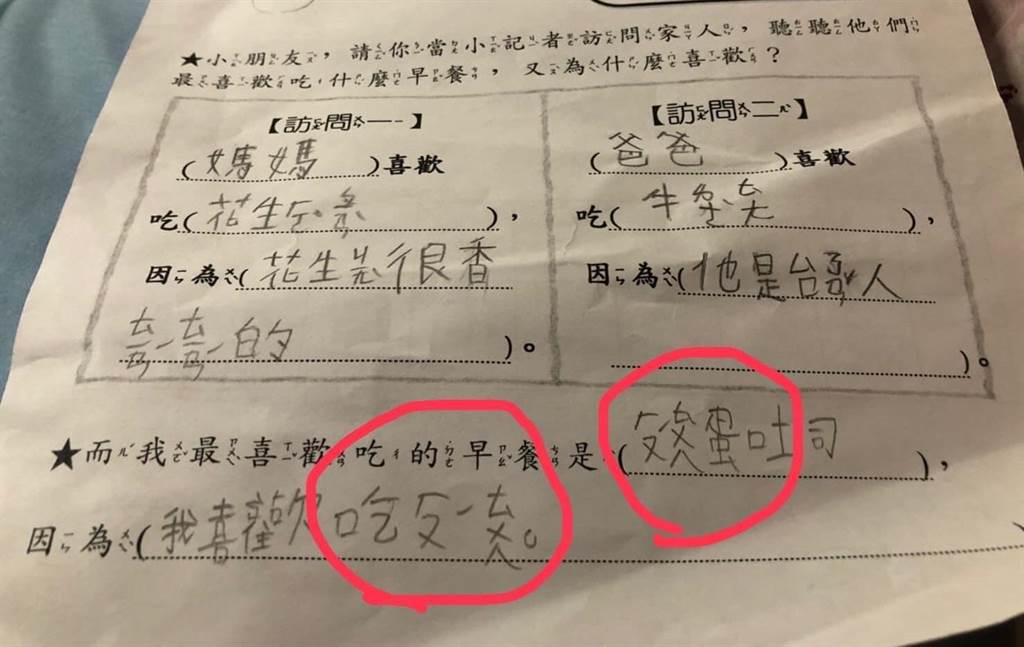 ★小朋友，請你當小記者訪問家人，聽聽他們
最喜歡吃什麼早餐，又為什麼喜歡？
【訪問一】
(媽媽)喜歡
吃(花生)，
因為(花生很香
的)。
【訪問二】
(爸爸)喜歡
吃(牛)，
因為(他是台ㄋㄢˊ人
)。
★而我最喜歡吃的早餐是(蛋吐司)，
因為(我喜歡吃。)